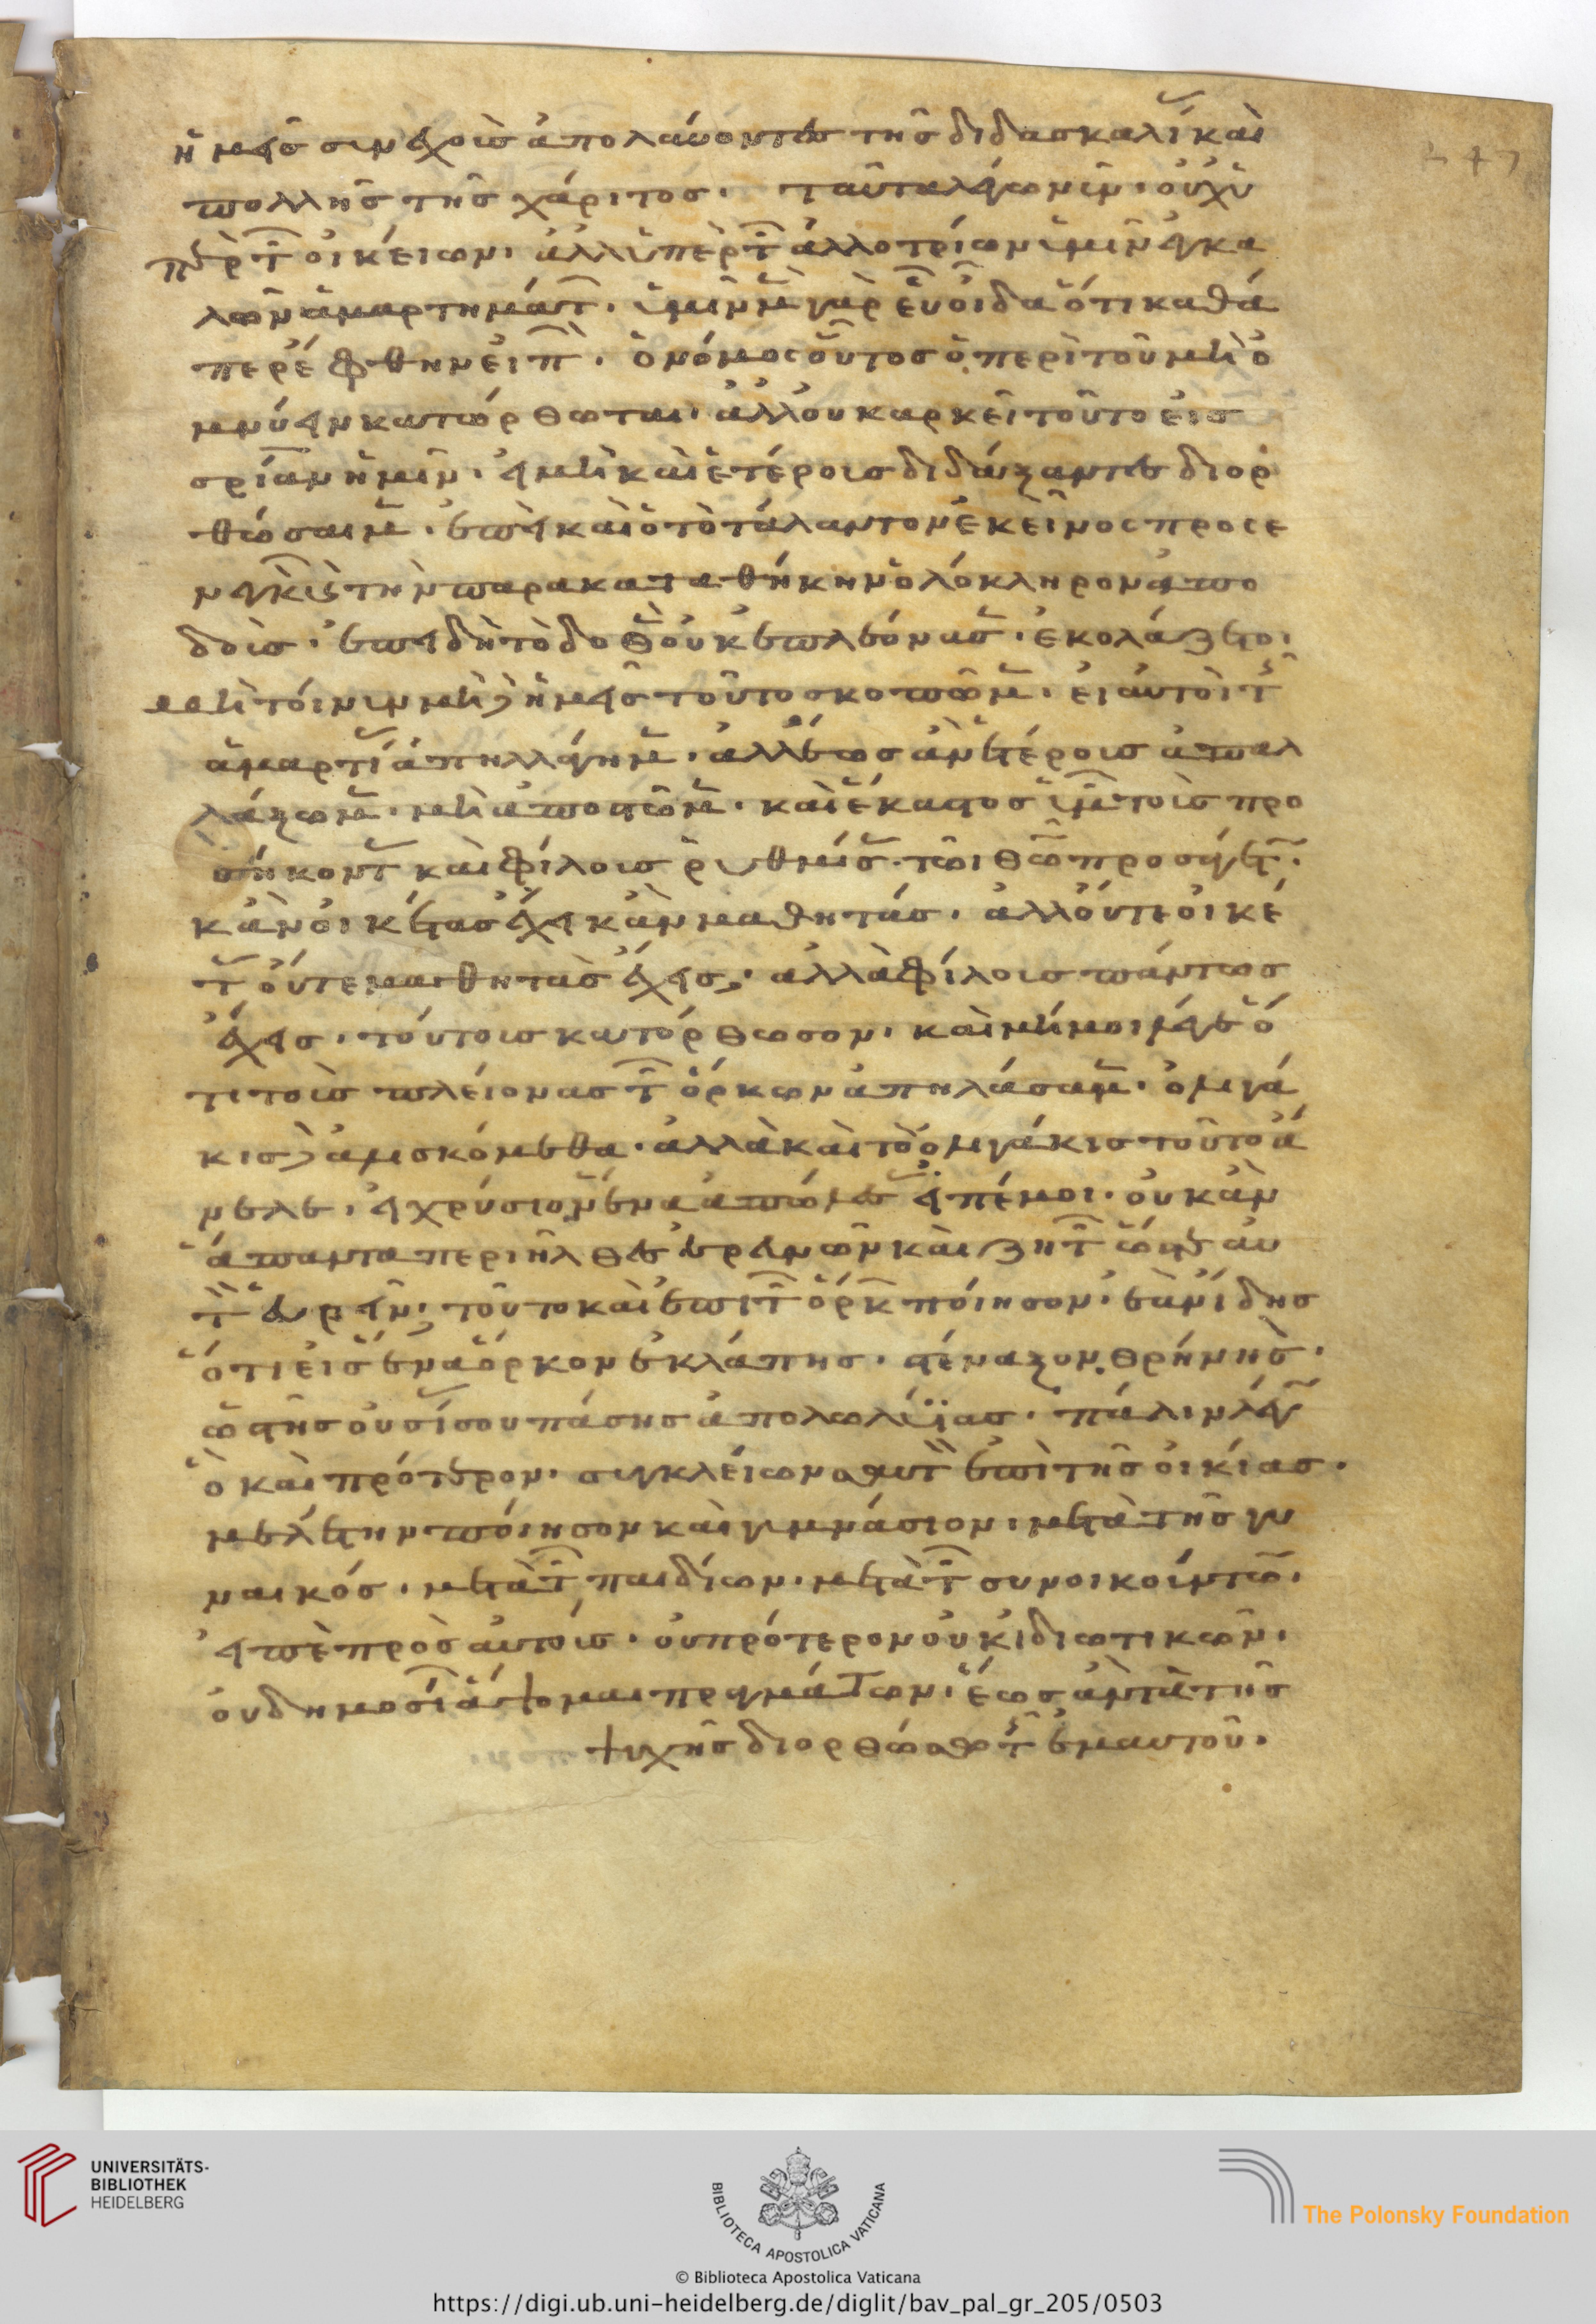 ἡμεῖς συνεχοῦς ἀπολαύοντες τῆς διδασκαλί καὶ
πολλῆς τῆς χάριτος. ταῦτα λέγω νῦν. οὐχ ὑ
πὲρ τ οἰκείων. ἀλλ ὑπὲρ τ ἀλλοτρίων ὑμῖν ἐγκα
λῶν ἁμαρτημάτ. ὑμῖν μ γὰρ εὖ οἶδα ὅτι καθά
περ ἔφθην εἰπ. ὁ νόμος οὗτος ὁ περὶ τοῦ μὴ ὀ
μνύειν κατώρθωται. ἀλλ οὐκ ἀρκεῖ τοῦτο εἰς
σρίαν ἡμῖν. εἰ μὴ καὶ ἑτέρους διδάξαντες διορ
θώσαιμ. ἐπεὶ καὶ ὁ τὸ τάλαντον ἐκεῖνος προσε
νεγκὼν τὴν παρακαταθήκην ὁλόκληρον ἀπο
δοὺς. ἐπειδὴ τὸ δοθ οὐκ ἐπλεόνασ. ἐκολάζετο.
μὴ τοίνυν μηδὲ ἡμεῖς τοῦτο σκοπῶμ. εἰ αὐτοὶ τ
ἁμαρτί ἀπηλλάγημ. ἀλλ ἕως ἂν ἑτέρους ἀπαλ
λάξωμ. μὴ ἀποστῶμ. καὶ ἕκαστος ὑμ τοὺς προ
σήκοντ καὶ φίλους ῥυθμίσ. τῶι θῶ προσαγέτ.
κἂν οἰκέτας ἔχηι κἂν μαθητάς. ἀλλ οὔτε οἰκέ
τ οὔτε μαθητὰς ἔχεις. ἀλλὰ φίλους πάντως
ἔχεις. τούτους κατόρθωσον. καὶ μή μοι λέγε ὅ
τι τοὺς πλείονας τ ὅρκων ἀπηλάσαμ. ὀλιγά
κις δὲ ἁλισκόμεθα. ἀλλὰ καὶ τὸ ὀλιγάκις τοῦτο ἄ
νελε. εἰ χρυσίον ἕνα ἀπώλεσ εἰπέ μοι. οὐκ ἂν
ἅπαντα περιῆλθες ἐρευνῶν καὶ ζητ ὥστε αὐ
τ εὑρεῖν. τοῦτο καὶ ἐπι τ ὅρκ ποίησον. ἐὰν ἴδης
ὅτι εἰς ἕνα ὅρκον ἐκλάπης. στέναξον. θρήνησ.
ὡς τῆς οὐσί σου πάσης ἀπολωλυίας. πάλιν λέγ
ὃ καὶ πρότερον. σύγκλεισον σαυτ ἐπὶ τῆς οἰκίας.
μελέτην ποίησον καὶ γυμνάσιον. μετὰ τῆς γυ
ναικός. μετὰ τ παιδίων. μετὰ τ συνοικούντω.
εἰπὲ πρὸς αὐτούς. οὐ πρότερον οὐκ ἰδιωτικῶν.
οὐ δημοσί ἅψομαι πραγμάτων. ἕως ἂν τὰ τῆς
ψυχῆς διορθώσω τ ἐμαυτοῦ.
UNIVERSITÄTS-
BIBLIOTHEK
HEIDELBERG
BIBLIOTECA APOSTOLICA VATICANA
The Polonsky Foundation
© Biblioteca Apostolica Vaticana
https://digi.ub.uni-heidelberg.de/diglit/bav_pal_gr_205/0503